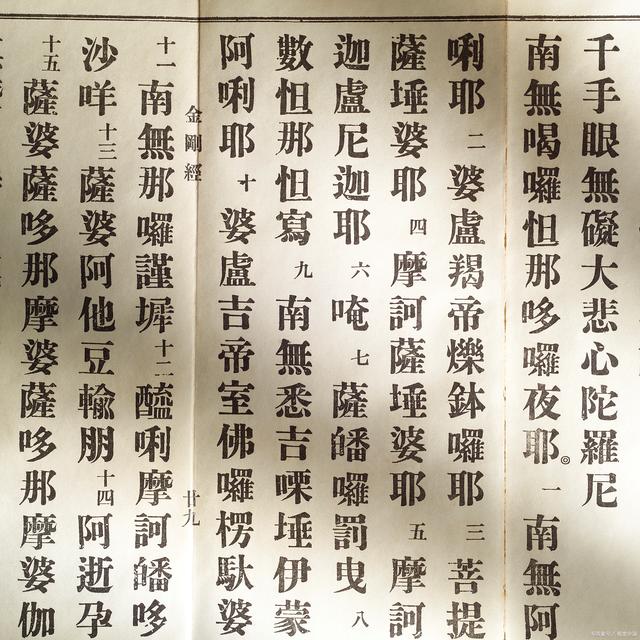 千手眼無礙大悲心陀羅尼
南無喝囉怛那哆囉夜耶 一 南無阿
唎耶 二 婆盧羯帝爍鉢囉耶 三 菩提
薩埵婆耶 四 摩訶薩埵婆耶 五 摩訶
迦盧尼迦耶 六 唵 七 薩皤囉罰曳 八
數怛那怛寫 九 南無悉吉嘌埵伊蒙
阿唎耶 十 婆盧吉帝室佛囉楞馱婆
金剛經 廿九
十一 南無那囉謹墀 十二 醯唎摩訶皤哆
沙咩 十三 薩婆阿他豆輸朋 十四 阿逝孕
十五 薩婆薩哆那摩婆薩哆那摩婆伽